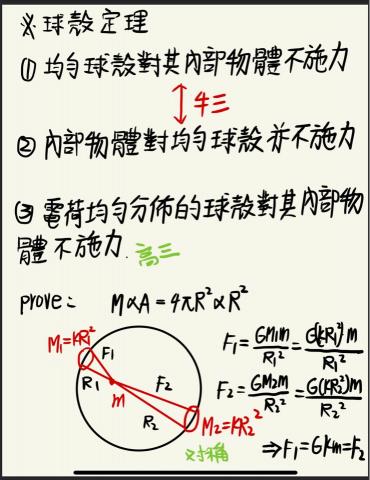 ※球殼定理
① 均勻球殼對其內部物體不施力
↕ 牛三
② 內部物體對均勻球殼亦不施力
③ 電荷均勻分佈的球殼對其內部物
體不施力. 高三
prove： M∝A=4πR²∝R²
M₁=KR₁²
F₁
R₁
m
F₂
R₂
M₂=KR₂²
對稱
F₁=GM₁m/R₁²=G(KR₁²)m/R₁²
F₂=GM₂m/R₂²=G(KR₂²)m/R₂²
⇒F₁=GKm=F₂